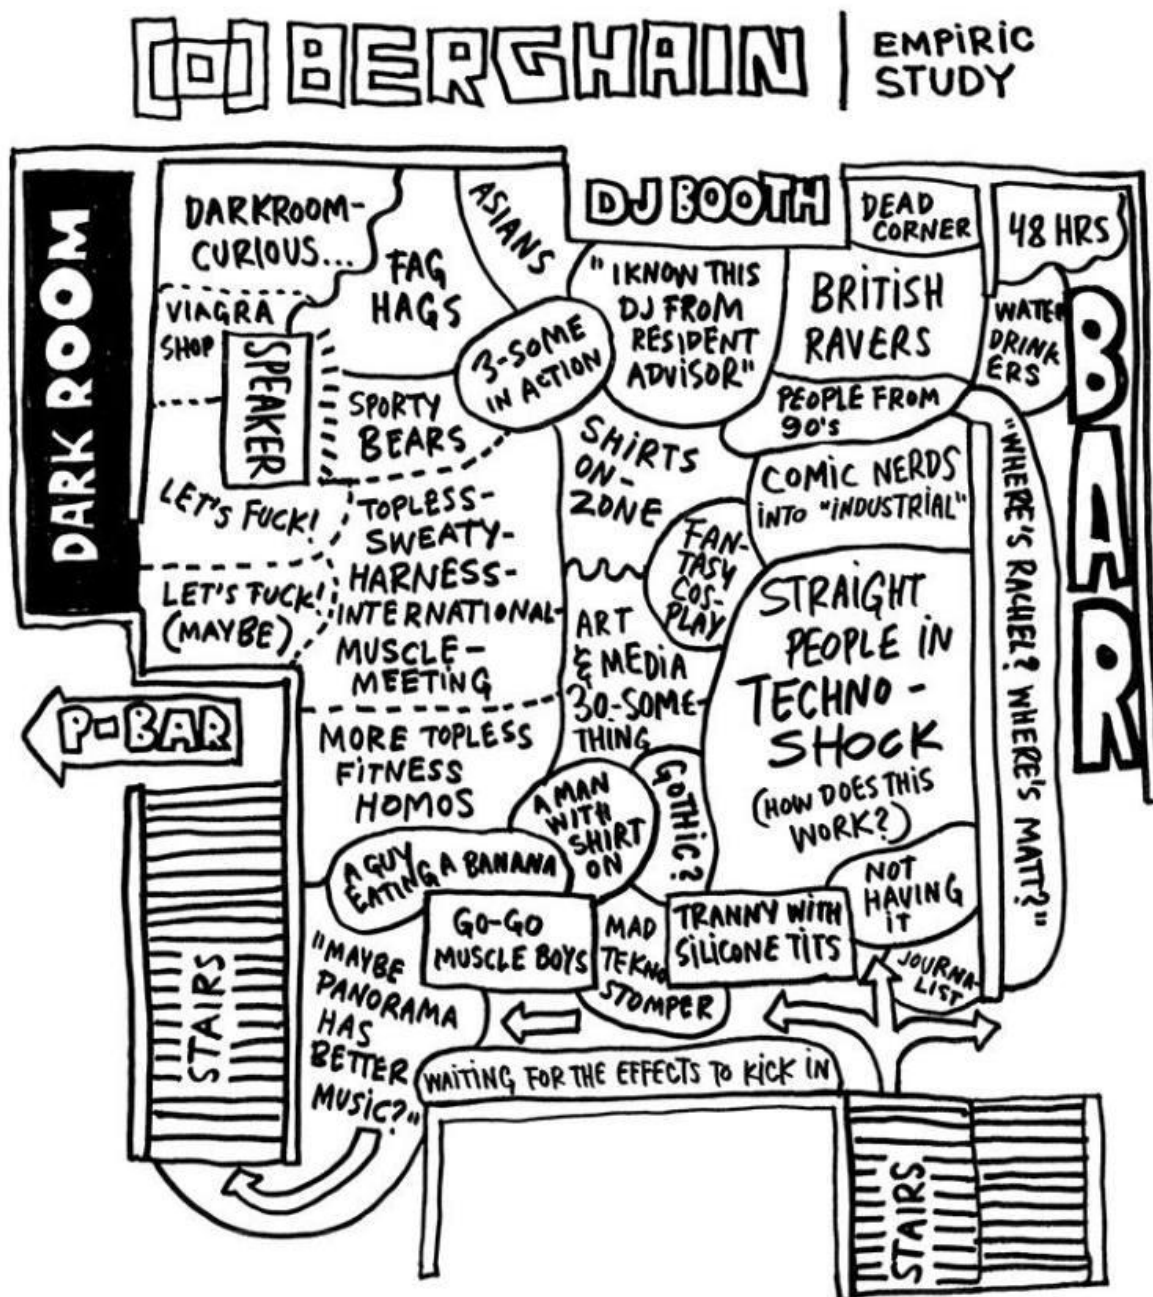 BERGHAIN
EMPIRIC
STUDY
DARK ROOM
DARKROOM-
CURIOUS...
FAG
HAGS
ASIANS
DJ BOOTH
DEAD
CORNER
48 HRS
BAR
VIAGRA
SHOP
SPEAKER
3-SOME
IN ACTION
"I KNOW THIS
DJ FROM
RESIDENT
ADVISOR"
BRITISH
RAVERS
WATER
DRINK
ERS
SPORTY
BEARS
SHIRTS
ON-
ZONE
PEOPLE FROM
90's
COMIC NERDS
INTO "INDUSTRIAL"
"WHERE'S RACHEL? WHERE'S MATT?"
LET'S FUCK!
LET'S FUCK!
(MAYBE)
TOPLESS-
SWEATY-
HARNESS-
INTERNATIONAL-
MUSCLE-
MEETING
FAN-
TASY
COS-
PLAY
ART
& MEDIA
30-SOME-
THING
STRAIGHT
PEOPLE IN
TECHNO-
SHOCK
(HOW DOES THIS
WORK?)
P-BAR
MORE TOPLESS
FITNESS
HOMOS
A MAN
WITH
SHIRT
ON
GOTHIC?
A GUY
EATING A BANANA
NOT
HAVING
IT
GO-GO
MUSCLE BOYS
MAD
TEKNO
STOMPER
TRANNY WITH
SILICONE TITS
JOURNA-
LIST
STAIRS
"MAYBE
PANORAMA
HAS
BETTER
MUSIC?"
WAITING FOR THE EFFECTS TO KICK IN
STAIRS